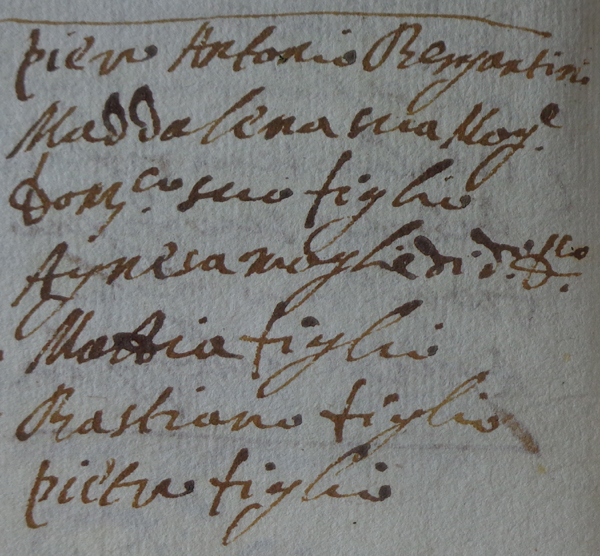 piero Antonio Benzantini
Maddalena sua Mog.e
Dom.co suo figlio
Agnesa moglie di d.o
Mattia figlio
Bastiano figlio
pietro figlio